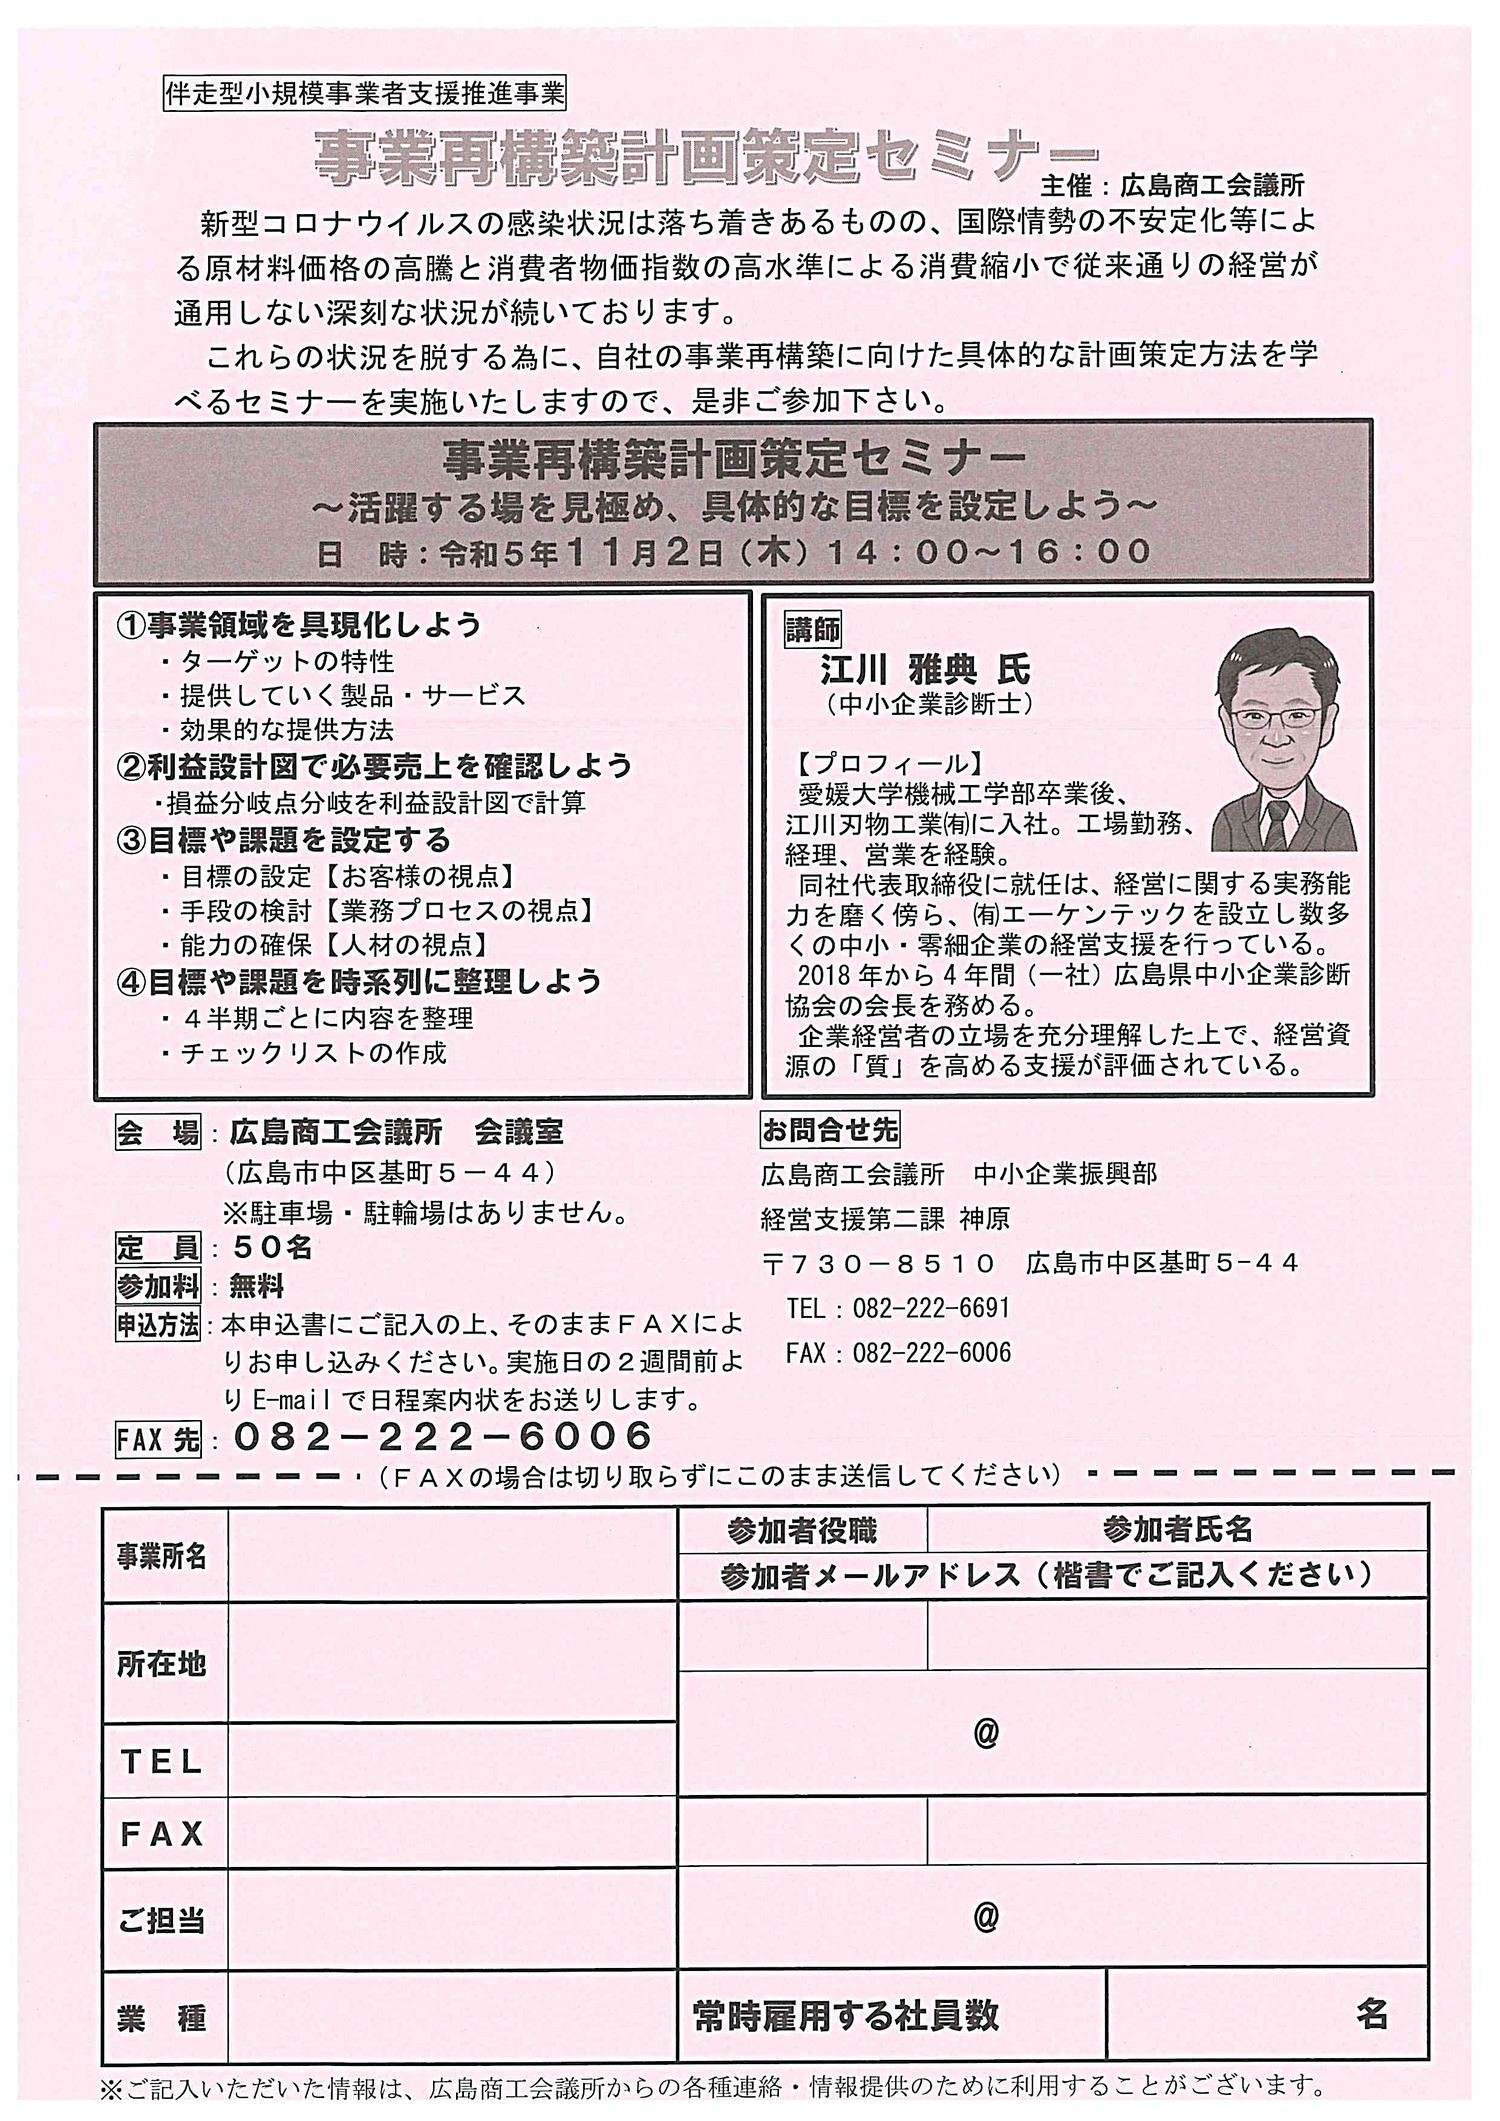 伴走型小規模事業者支援推進事業
事業再構築計画策定セミナー
主催：広島商工会議所
新型コロナウイルスの感染状況は落ち着きあるものの、国際情勢の不安定化等によ
る原材料価格の高騰と消費者物価指数の高水準による消費縮小で従来通りの経営が
通用しない深刻な状況が続いております。
これらの状況を脱する為に、自社の事業再構築に向けた具体的な計画策定方法を学
べるセミナーを実施いたしますので、是非ご参加下さい。
事業再構築計画策定セミナー
～活躍する場を見極め、具体的な目標を設定しよう～
日　時：令和５年１１月２日（木）１４：００～１６：００
①事業領域を具現化しよう
・ターゲットの特性
・提供していく製品・サービス
・効果的な提供方法
②利益設計図で必要売上を確認しよう
・損益分岐点分岐を利益設計図で計算
③目標や課題を設定する
・目標の設定【お客様の視点】
・手段の検討【業務プロセスの視点】
・能力の確保【人材の視点】
④目標や課題を時系列に整理しよう
・４半期ごとに内容を整理
・チェックリストの作成
講師
江川 雅典 氏
（中小企業診断士）
【プロフィール】
愛媛大学機械工学部卒業後、
江川刃物工業㈲に入社。工場勤務、
経理、営業を経験。
同社代表取締役に就任は、経営に関する実務能
力を磨く傍ら、㈲エーケンテックを設立し数多
くの中小・零細企業の経営支援を行っている。
2018 年から 4 年間（一社）広島県中小企業診断
協会の会長を務める。
企業経営者の立場を充分理解した上で、経営資
源の「質」を高める支援が評価されている。
会　場：広島商工会議所　会議室
（広島市中区基町５－４４）
※駐車場・駐輪場はありません。
定　員：５０名
参加料：無料
申込方法：本申込書にご記入の上、そのままＦＡＸによ
りお申し込みください。実施日の２週間前よ
り E-mail で日程案内状をお送りします。
FAX 先：０８２－２２２－６００６
お問合せ先
広島商工会議所　中小企業振興部
経営支援第二課 神原
〒７３０－８５１０　広島市中区基町５-４４
TEL：082-222-6691
FAX：082-222-6006
（ＦＡＸの場合は切り取らずにこのまま送信してください）
事業所名
参加者役職　参加者氏名
参加者メールアドレス（楷書でご記入ください）
所在地
@
ＴＥＬ
ＦＡＸ
ご担当
@
業　種
常時雇用する社員数　名
※ご記入いただいた情報は、広島商工会議所からの各種連絡・情報提供のために利用することがございます。